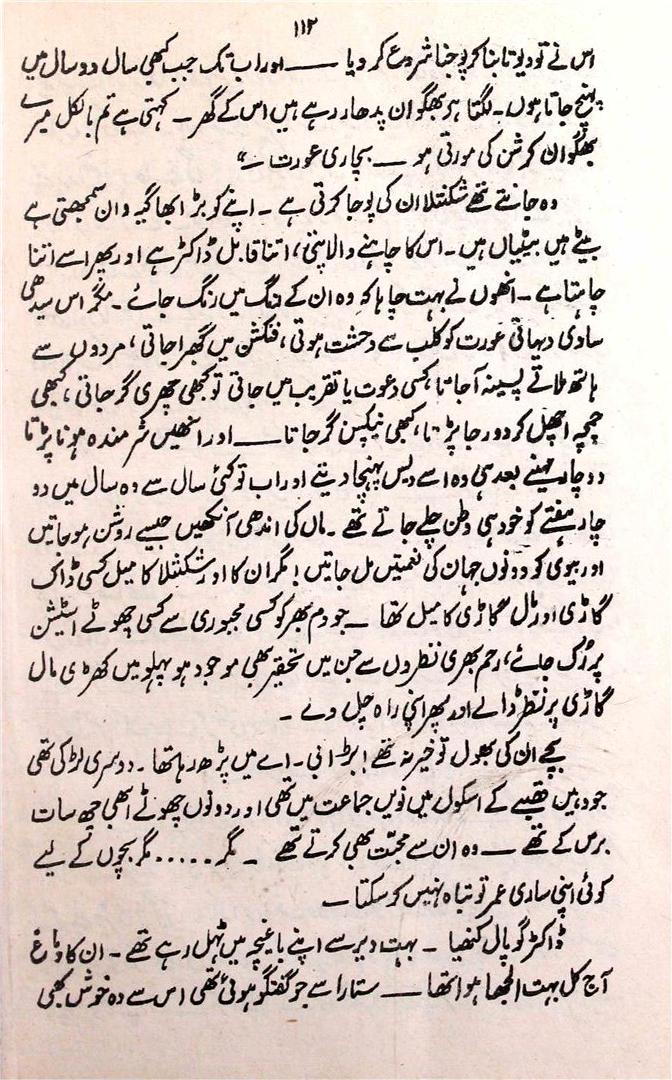 ۱۱۲
اس نے تو دیوتا بنا کر پوجنا شروع کر دیا ــــ اور اب تک جب کبھی سال دو سال میں
پہنچ جاتا ہوں۔ لگتا ہو بھگوان پدھار رہے ہیں اس کے گھر ۔ کہتی ہے تم بالکل میرے
بھگوان کرشن کی مورتی ہو ــ بچاری عورت ــ”
وہ جانتے تھے شکنتلا ان کی پوجا کرتی ہے ۔ اپنے کو بڑا ابھاگیہ وان سمجھتی ہے
بیٹے ہیں بیٹیاں ہیں۔ اس کا چاہنے والا پتی، اتنا قابل ڈاکٹر ہے اور پھر اسے اتنا
چاہتا ہے ۔ انھوں نے بہت چاہا کہ وہ ان کے رنگ میں رنگ جائے ۔ مگر اس سیدھی
سادی دیہاتی عورت کو کلب سے وحشت ہوتی، فنکشن میں گھبرا جاتی، مردوں سے
ہاتھ ملاتے پسینہ آ جاتا، کسی دعوت یا تقریب میں جاتی تو کبھی چھری گر جاتی، کبھی
چمچہ اچھل کر دور جا پڑتا، کبھی نیپکن گر جاتا ــــ اور انھیں شرمندہ ہونا پڑتا
دو چار مہینے بعد ہی وہ اسے دیس پہنچا دیتے اور اب تو کئی سال سے وہ سال میں دو
چار ہفتے کو خود ہی وطن چلے جاتے تھے ۔ ماں کی اندھی آنکھیں جیسے روشن ہو جاتیں
اور بیوی کو دونوں جہان کی نعمتیں مل جاتیں! مگر ان کا اور شکنتلا کا میل کسی ڈاک
گاڑی اور مال گاڑی کا میل تھا ــ جو دم بھر کو کسی مجبوری سے کسی چھوٹے اسٹیشن
پر رُک جائے، رحم بھری نظروں سے جن میں تحقیر بھی موجود ہو پہلو میں کھڑی مال
گاڑی پر نظر ڈالے اور پھر اپنی راہ چل دے ۔
بچے ان کی بھول تو خیر نہ تھے! بڑا بی۔ اے میں پڑھ رہا تھا ۔ دوسری لڑکی تھی
جو وہیں قصبے کے اسکول میں نویں جماعت میں تھی اور دونوں چھوٹے ابھی چھ سات
برس کے تھے ــ وہ ان سے محبت بھی کرتے تھے ۔ مگر ..... مگر بچوں کے لیے
کوئی اپنی ساری عمر تو تباہ نہیں کر سکتا ــ
ڈاکٹر گوپال کنھیا ۔ بہت دیر سے اپنے باغیچہ میں ٹہل رہے تھے ۔ ان کا دماغ
آج کل بہت الجھا ہوا تھا ــــ ستارا سے جو گفتگو ہوئی تھی اس سے وہ خوش بھی